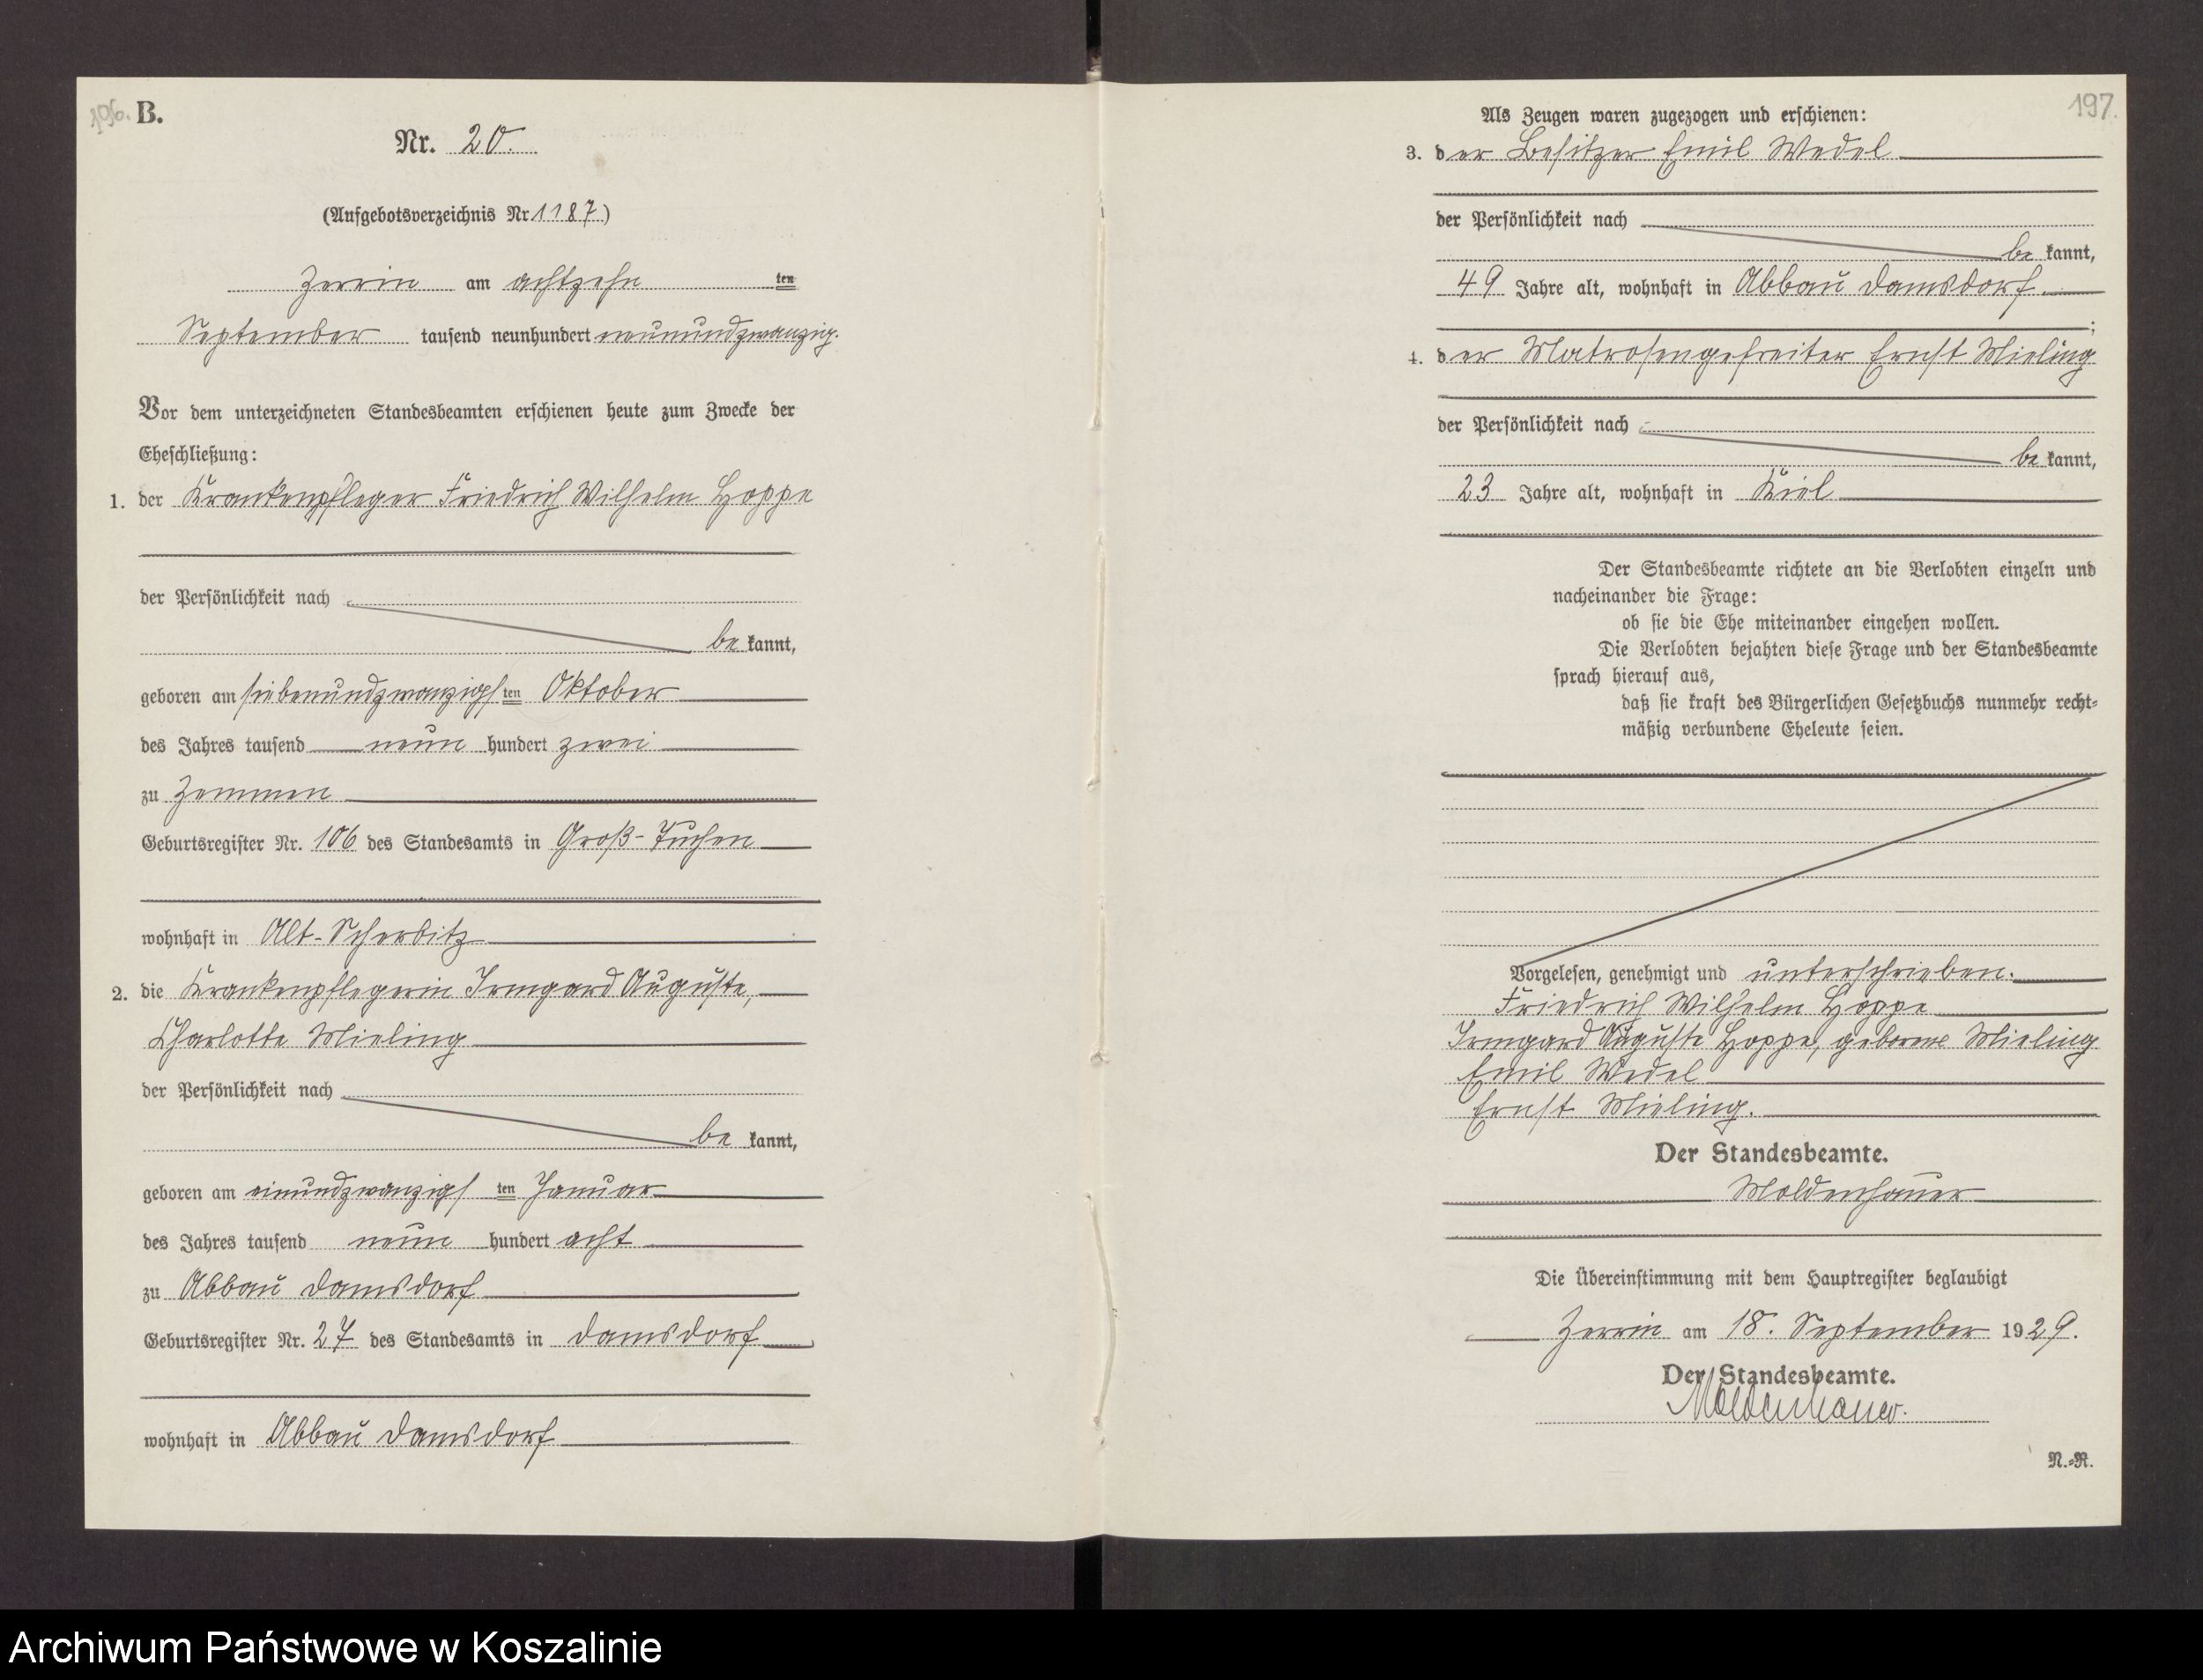 196. B.
Nr. 20.
(Aufgebotsverzeichnis Nr. 1187.)
Zerrin am achtzehn ten
September tausend neunhundert neunundzwanzig.
Vor dem unterzeichneten Standesbeamten erschienen heute zum Zwecke der
Eheschließung:
1. der Krankenpfleger Friedrich Wilhelm Hoppe
der Persönlichkeit nach
be kannt,
geboren am siebenundzwanzigsten Oktober
des Jahres tausend neun hundert zwei
zu Zemmen
Geburtsregister Nr. 106 des Standesamts in Groß-Tuchen
wohnhaft in Alt-Scherbitz
2. die Krankenpflegerin Irmgard Auguste,
Charlotte Mieling
der Persönlichkeit nach
be kannt,
geboren am einundzwanzigs ten Januar
des Jahres tausend neun hundert acht
zu Abbau Damsdorf
Geburtsregister Nr. 27 des Standesamts in Damsdorf
wohnhaft in Abbau Damsdorf
197.
Als Zeugen waren zugezogen und erschienen:
3. der Besitzer Emil Wedel
der Persönlichkeit nach
be kannt,
49 Jahre alt, wohnhaft in Abbau Damsdorf
;
4. der Matrosengefreiter Ernst Mieling
der Persönlichkeit nach
be kannt,
23 Jahre alt, wohnhaft in Kiel
Der Standesbeamte richtete an die Verlobten einzeln und
nacheinander die Frage:
ob sie die Ehe miteinander eingehen wollen.
Die Verlobten bejahten diese Frage und der Standesbeamte
sprach hierauf aus,
daß sie kraft des Bürgerlichen Gesetzbuchs nunmehr recht-
mäßig verbundene Eheleute seien.
Vorgelesen, genehmigt und unterschrieben.
Friedrich Wilhelm Hoppe
Irmgard Auguste Hoppe, geborene Mieling
Emil Wedel
Ernst Mieling.
Der Standesbeamte.
Moldenhauer
Die Übereinstimmung mit dem Hauptregister beglaubigt
Zerrin am 18. September 1929.
Der Standesbeamte.
Moldenhauer.
N.-R.
Archiwum Państwowe w Koszalinie